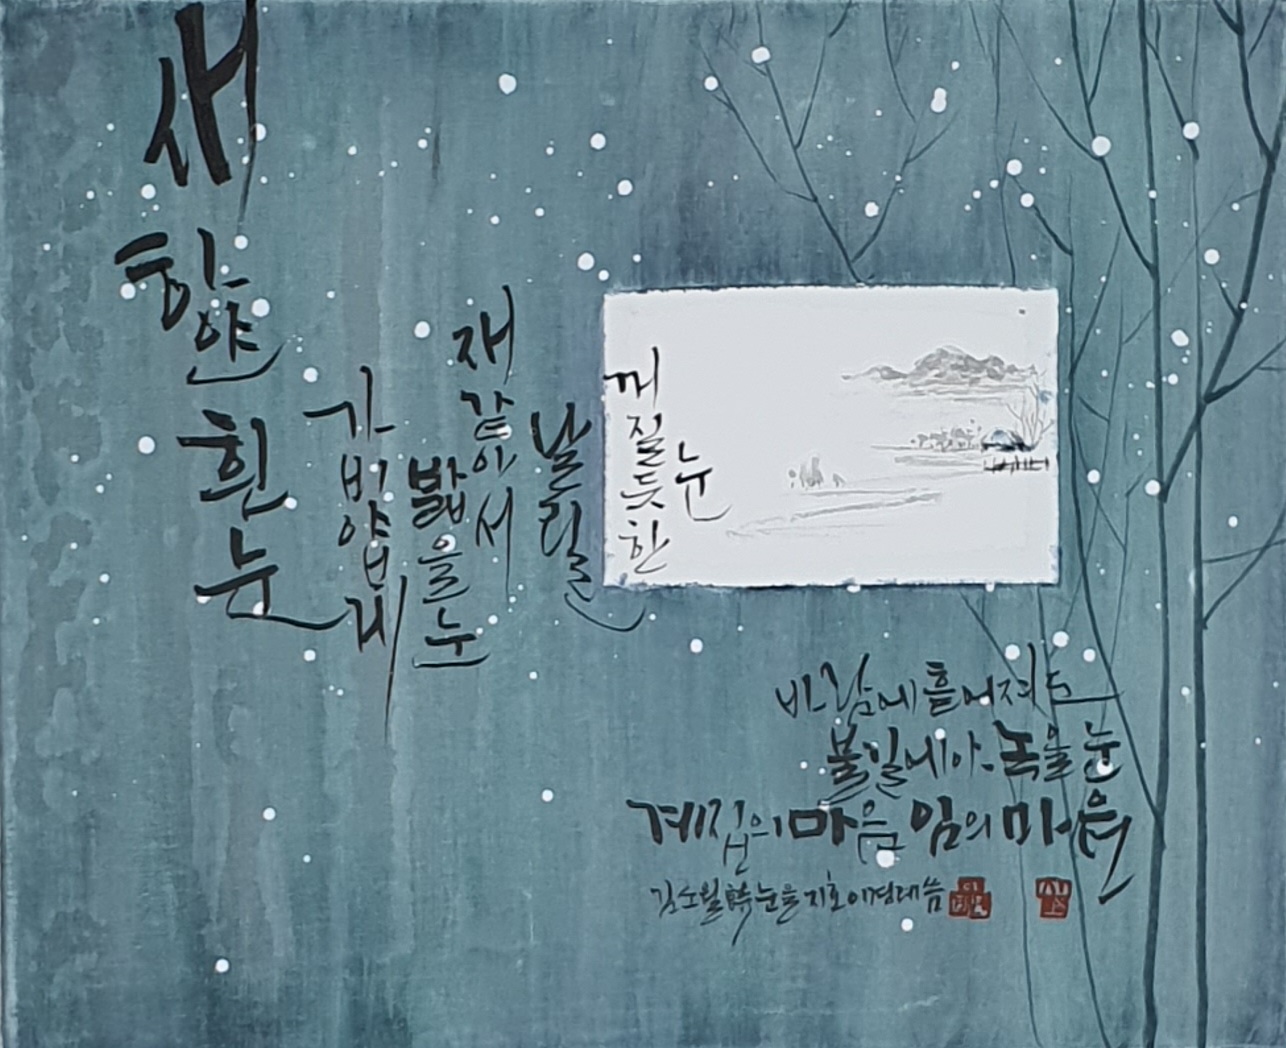 새하얀 흰눈
가비얍게
밟을 눈
재같아서
날릴
꺼질듯한
눈
바람에 흩어져도
불길에야 녹을 눈
계집의 마음 임의 마음
김소월 詩 눈을 지호 이경래 씀